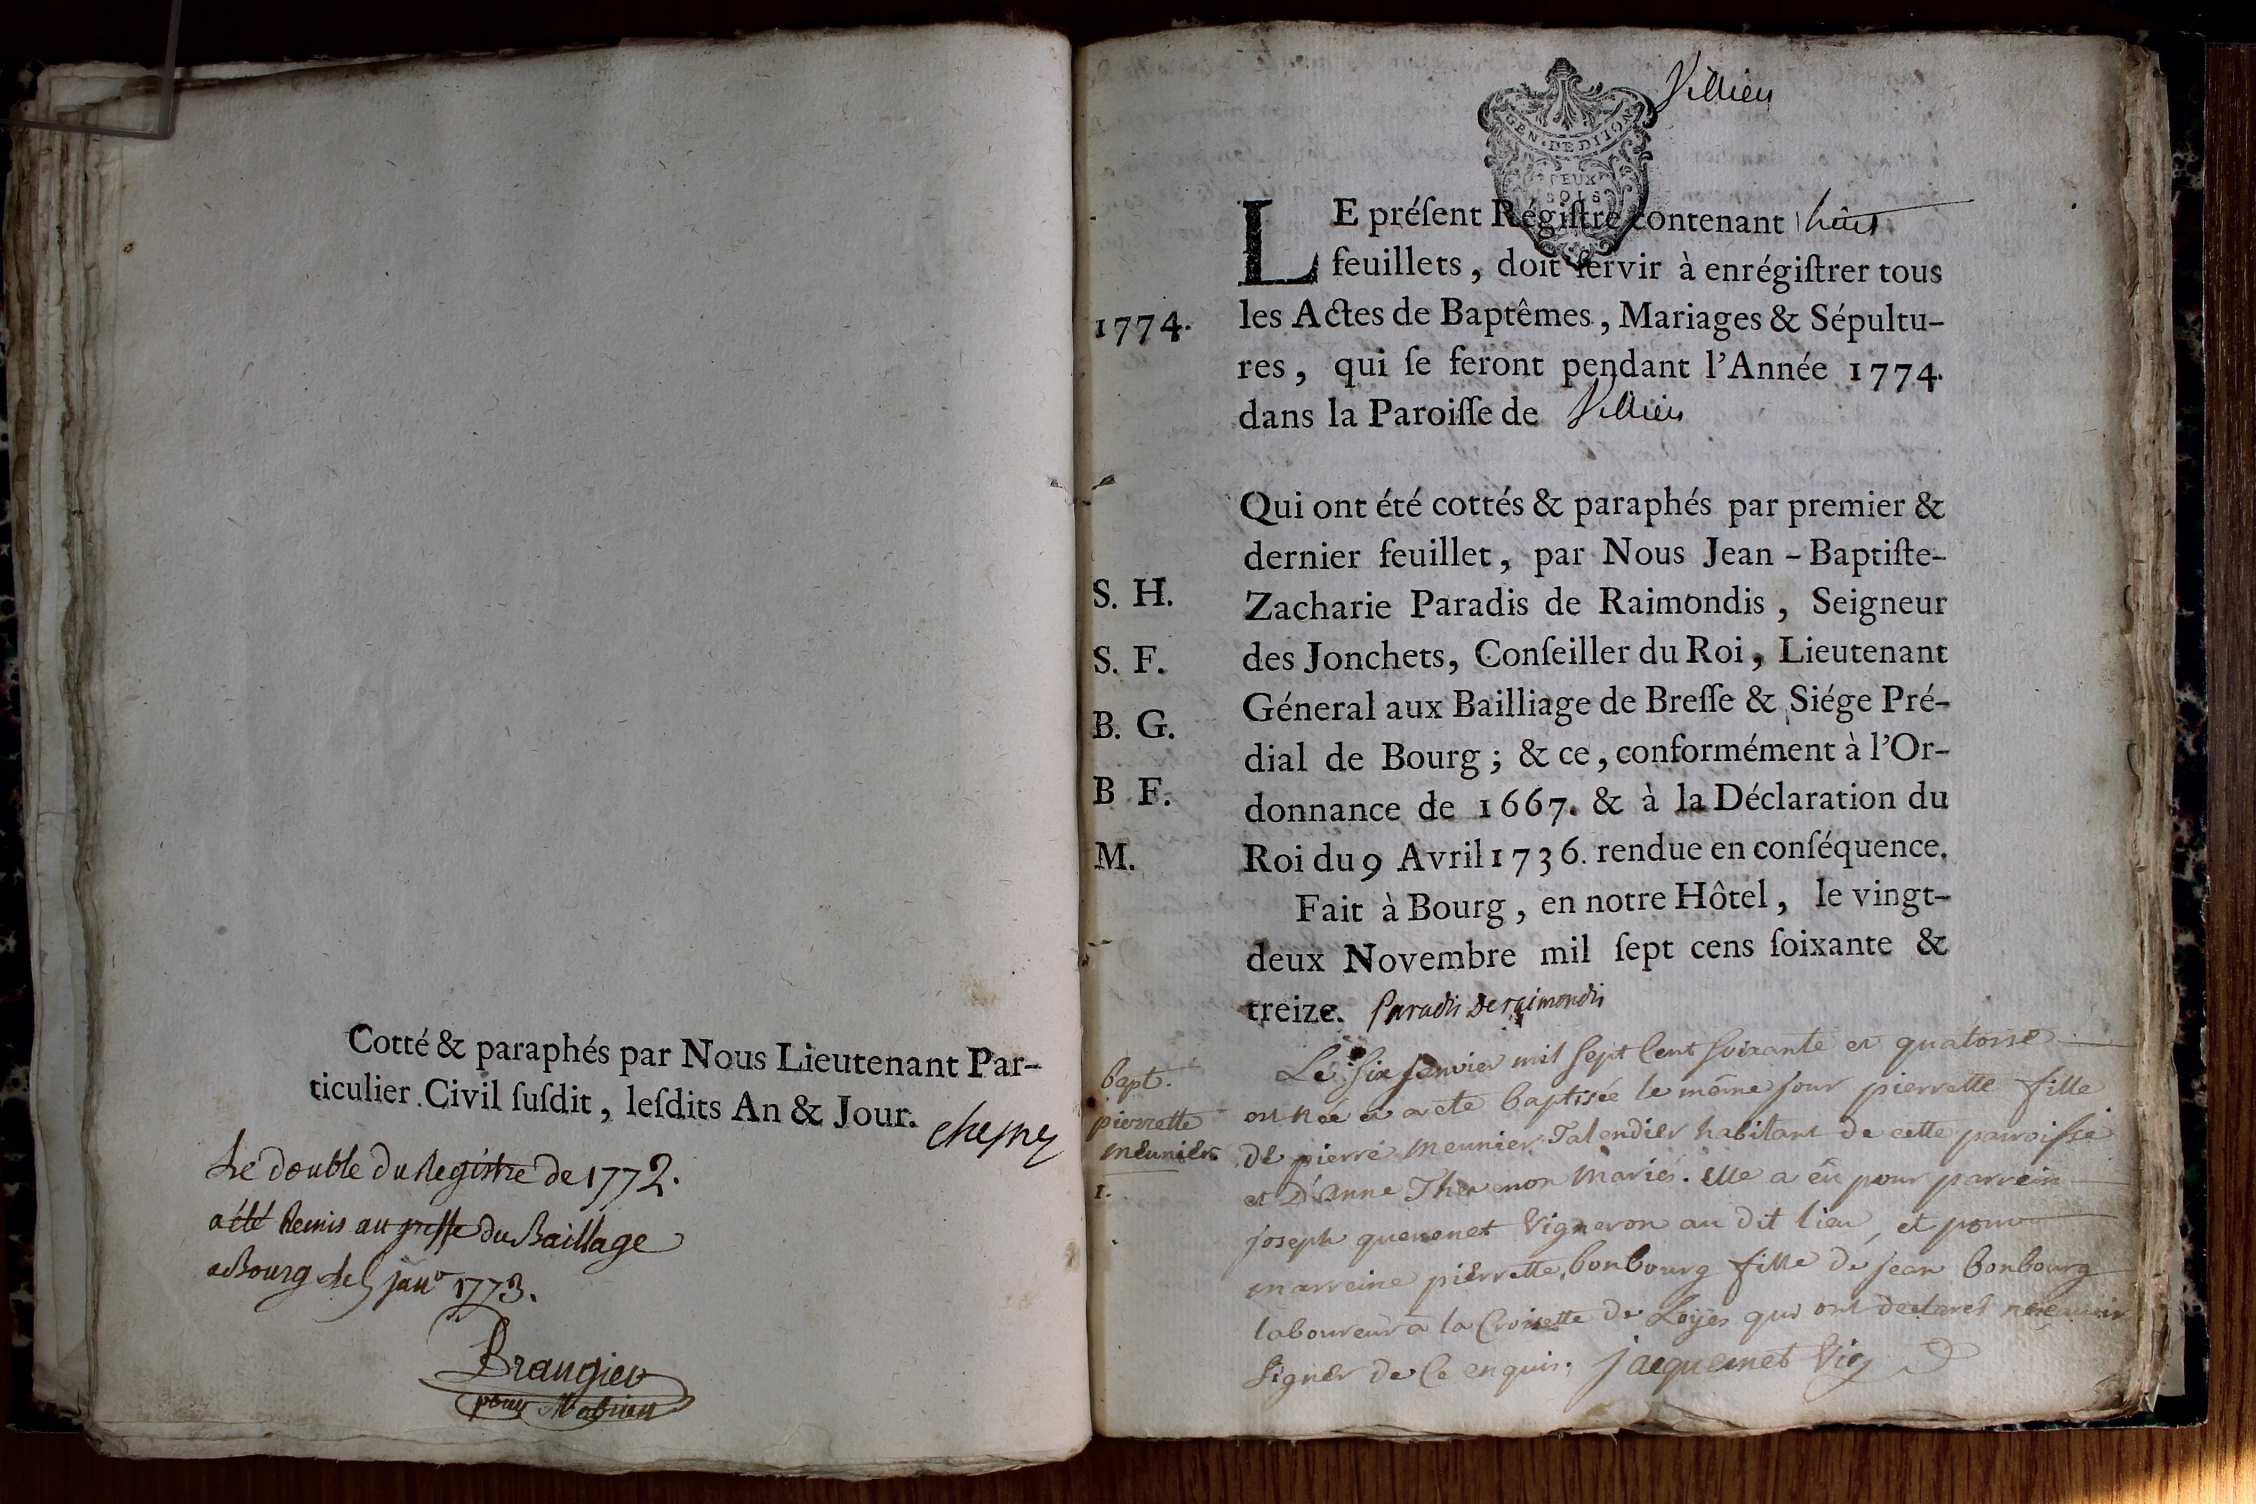 Cotté & paraphés par Nous Lieutenant Par-
ticulier Civil ſuſdit, leſdits An & Jour.
Le double du Registre de 1772.
a été Remis au greffe du Baillage
a Bourg le janv 1773.
Brangier
pour
Villieu
GEN. DE DIJON
DEUX
SOLS
LE préſent Régiſtre contenant huit
feuillets, doit ſervir à enrégiſtrer tous
1774.
les Actes de Baptêmes, Mariages & Sépultu-
res, qui ſe feront pendant l'Année 1774.
dans la Paroiſſe de Villieu
Qui ont été cottés & paraphés par premier &
dernier feuillet, par Nous Jean-Baptiſte-
S. H.
Zacharie Paradis de Raimondis, Seigneur
S. F.
des Jonchets, Conſeiller du Roi, Lieutenant
B. G.
Géneral aux Bailliage de Breſſe & Siége Pré-
dial de Bourg; & ce, conformément à l'Or-
B F.
donnance de 1667. & à la Déclaration du
M.
Roi du 9 Avril 1736. rendue en conſéquence.
Fait à Bourg, en notre Hôtel, le vingt-
deux Novembre mil ſept cens ſoixante &
treize. Paradis de raimondis
bapt.
pierrette
meunier
1.
Le six janvier mil sept cent soixante et quatorse
est née et a été baptisée le même jour pierrette fille
de pierre meunier Talendier habitant de cette parroisse
et D'anne Thevenon mariés. elle a eu pour parrein
joseph quenonet Vigneron au dit lieu, et pour
marreine pierrette bonbourg fille de jean bonbourg
laboureur a la Croisette de Loyes qui ont declarés ne sçavoir
signer de ce enquis. jacquemet Vic